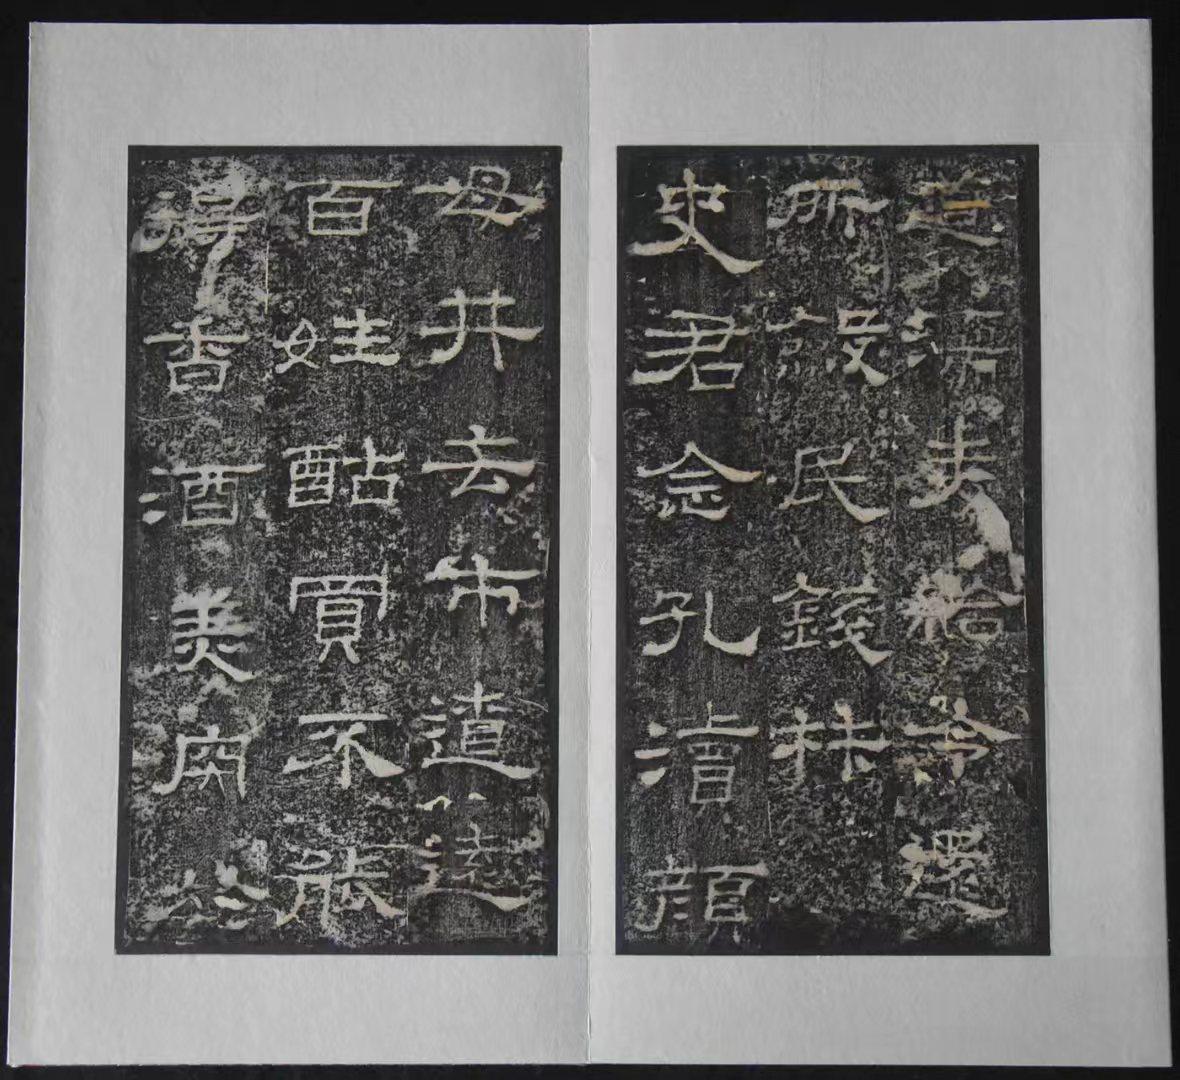 道濡麥給令還
所斂民錢材
史君念孔瀆顏
母井去市遼遠
百姓酤買不能
得香酒美肉於